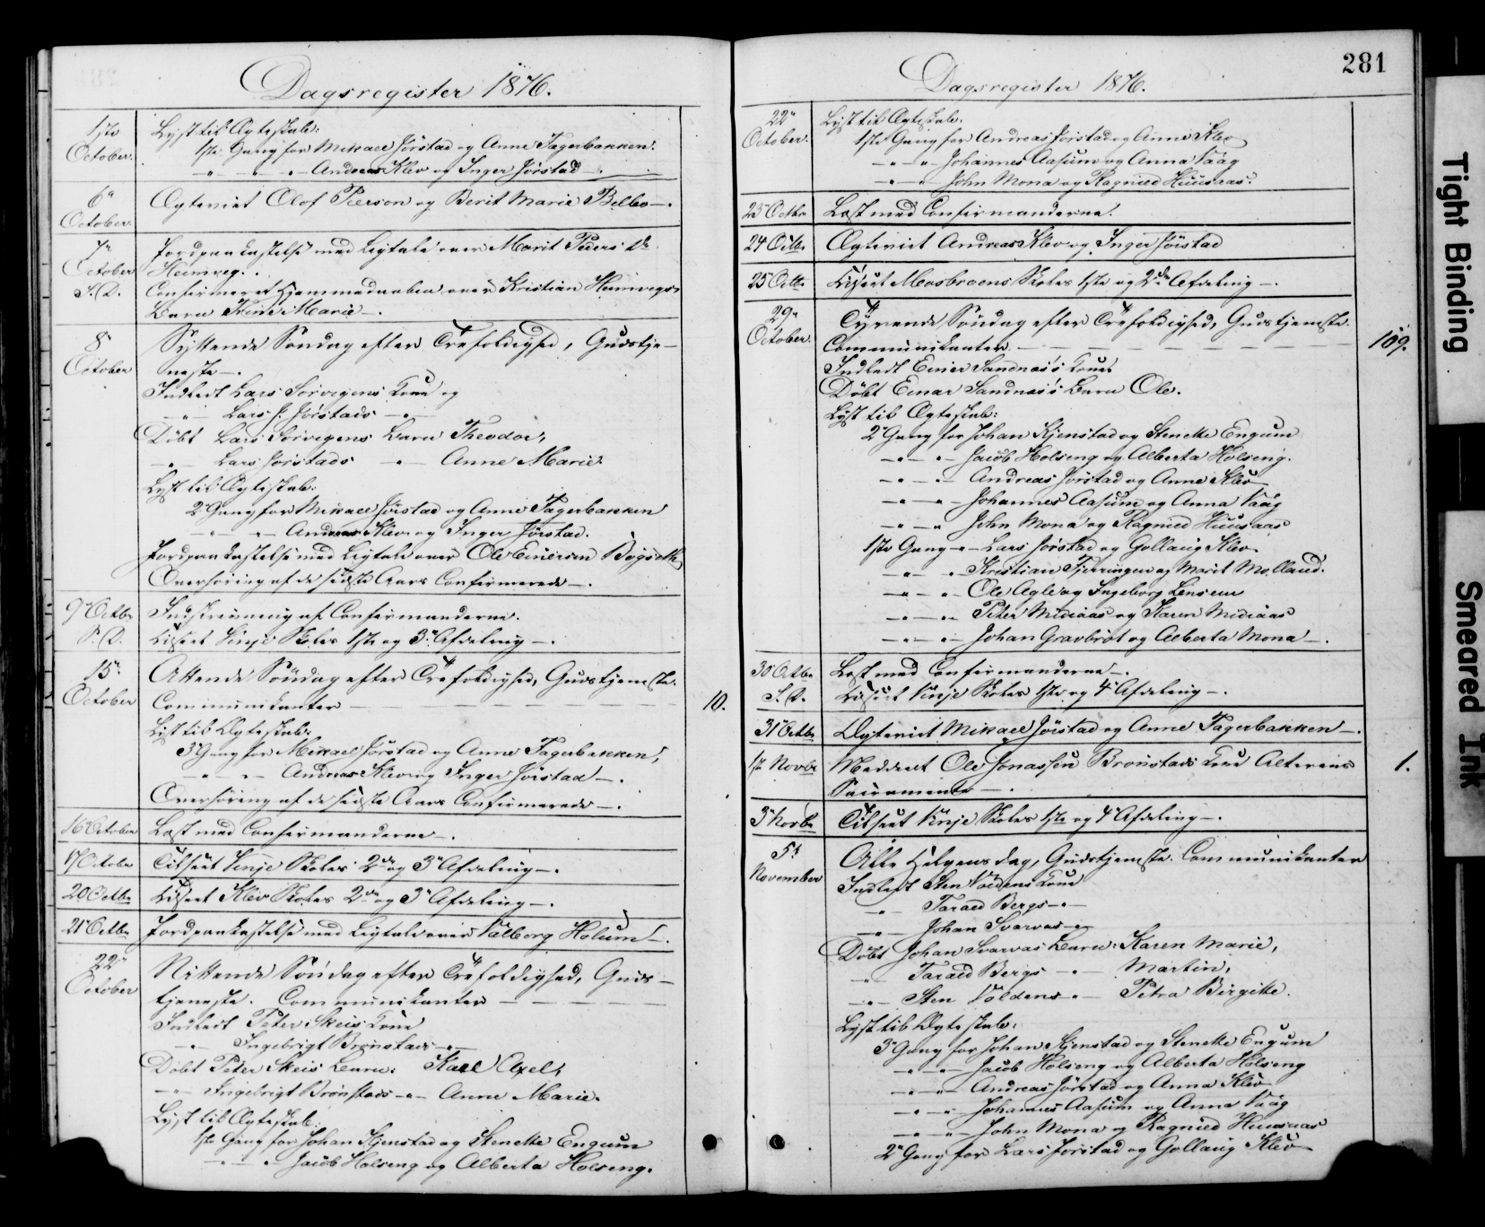 Dagsregister 1876.
1ste October. Lyst til Ægteskab:
1ste Gang for Mikael Jørstad og Anne Fagerbakken.
" — " Andreas Klev og Inger Jørstad —
6te October. Ægteviet Olof Pierson og Berit Marie Belbo —.
7de October Jordpaakastelse med Ligtale over Marit Peders D.
Heimveg.
S. D. Confirmeret Hjemmedaaben over Kristian Heimvegs
Barn Marie —.
8de October Syttende Søndag efter Trefoldighed, Gudstje-
neste —.
Indledt Lars Sørvigens Kone og
— " — Lars J. Jørstads — " —
Døbt Lars Sørvigens Barn Theodor,
— " — Lars Jørstads — " — Anne Marie.
Lyst til Ægteskab:
2 Gang for Mikael Jørstad og Anne Fagerbakken
— " — " — Andreas Klev og Inger Jørstad.
Jordpaakastelse med Ligtale over Ole Einersen
Overhøring af de sidste Aars Confirmerede —.
9de Octbr. Indskrivning af Confirmanderne.
S. D. Tilseet Vinje Skoles 1ste og 3die Afdeling —.
15de October Attende Søndag efter Trefoldighed, Gudstjeneste.
Communikanter — — — — 10.
Lyst til Ægteskab:
3 Gang for Mikael Jørstad og Anne Fagerbakken,
— " — " — Andreas Klev og Inger Jørstad —.
Overhøring af de sidste Aars Confirmerede —.
16 October Læst med Confirmanderne —.
17 October Tilseet Vinje Skoles 2den og 3die Afdeling —.
20 Octbr. Tilseet Klev Skoles 2den og 3die Afdeling —.
21 Octbr. Jordpaakastelse med Ligtale over Valborg Holum —.
22de October Nittende Søndag efter Trefoldighed, Guds-
tjeneste. Communikanter — — — —
Indledt Peter Skeis Kone
— " — Ingebrigt Brønstads — " —
Døbt Peter Skeis Barn: Karl Axel,
— " — Ingebrigt Brønstads — " — Anne Marie.
Lyst til Ægteskab:
1ste Gang for Johan Kjenstad og Stenette Engum
— " — " Jacob Holseng og Alberta Holseng.
281
Dagsregister 1876.
22de October. Lyst til Ægteskab:
1ste Gang for Andreas Jørstad og Anne Klev
— " — " Johannes Aasum og Anna Vaag
— " — " John Mona og Ragnild Huusaas.
23 Octbr. Læst med Confirmanderne.
24 Octbr. Ægteviet Andreas Klev og Inger Jørstad
25 Octbr. Tilseet Skoles 1ste og 2den Afdeling —.
29de October. Tyvende Søndag efter Trefoldighed, Gudstjeneste.
Communikanter — — — — 109.
Indledt Einar Sandnæs's Kone
Døbt Einar Sandnæs's Barn Ole.
Lyst til Ægteskab:
2 Gang for Johan Kjenstad og Stenette Engum
— " — " Jacob Holseng og Alberta Holseng.
— " — " Andreas Jørstad og Anne Klev
— " — " Johannes Aasum og Anna Vaag
— " — " John Mona og Ragnild Huusaas
1ste Gang — " — Lars Jørstad og Gollaug Klev
— " — " Kristian Fjerringen og Marit Molland.
— " — " Ole Agle og Ingeborg
— " — " Peter Midiaas og Karen Midiaas
— " — " Johan Gravbrøt og Alberta Mona —.
30 Octbr. Læst med Confirmanderne —.
S. D. Tilseet Vinje Skoles 1ste og 4de Afdeling —.
31 Octbr. Ægteviet Mikael Jørstad og Anne Fagerbakken —.
1ste Novbr. Meddeelt Ole Jonassen Brønstads Kone Alterens 1.
Sacramente —.
3 Novbr. Tilseet Vinje Skoles 1ste og 4de Afdeling —.
5te November Alle Helgens Dag, Gudstjeneste. Communikanter
Indledt Sten Voldens Kone
— " — Tarald Bergs — " —
— " — Johan Svarvas — "
Døbt Johan Svarvas Barn: Karen Marie,
— " — Tarald Bergs — " — Martin,
— " — Sten Voldens — " — Petra Birgitte.
Lyst til Ægteskab:
3 Gang for Johan Kjenstad og Stenette Engum
— " — " Jacob Holseng og Alberta Holseng
— " — " Andreas Jørstad og Anna Klev
— " — " Johannes Aasum og Anna Vaag
— " — " John Mona og Ragnild Huusaas
2 Gang for Lars Jørstad og Gollaug Klev
Tight Binding
Smeared Ink